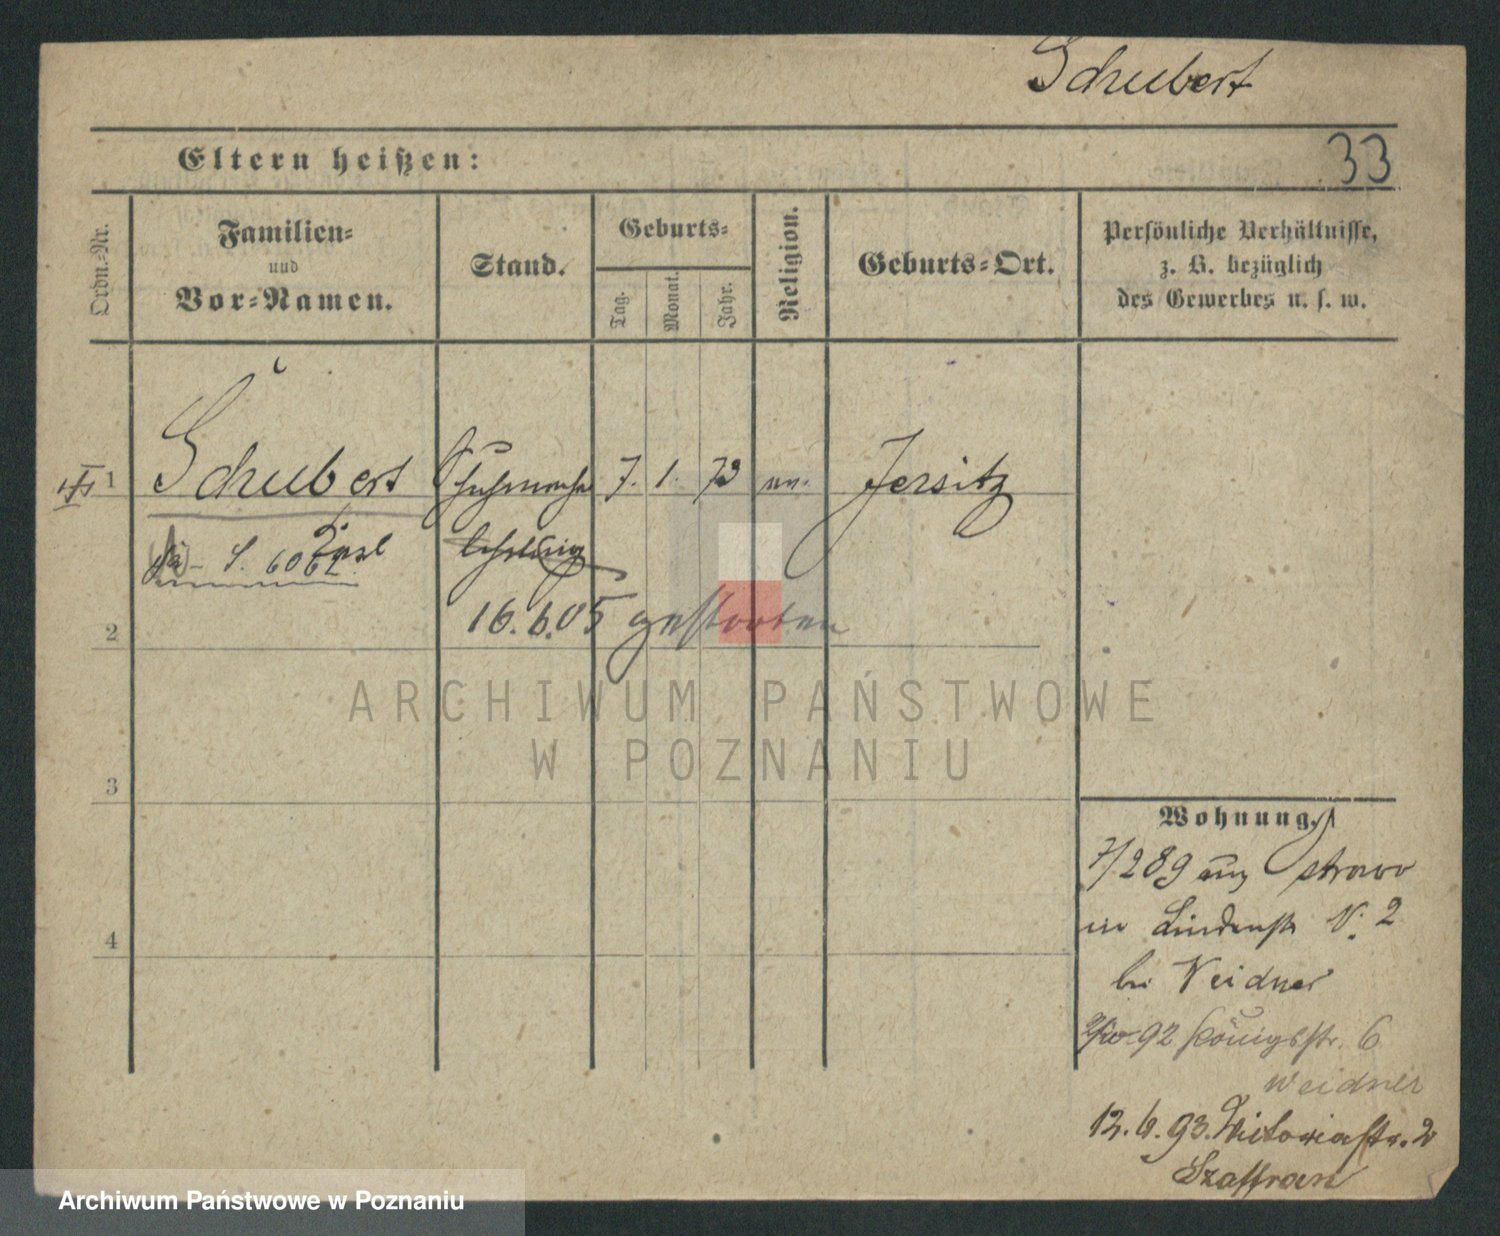 Schubert
Eltern heißen:
33
Ordn.-Nr.
Familien-
und
Vor-Namen.
Stand.
Geburts-
Tag.
Monat.
Jahr.
Religion.
Geburts-Ort.
Persönliche Verhältnisse,
z. B. bezüglich
des Gewerbes u. s. w.
1
Schubert
Schuhmacher
7. 1. 73
ev.
Jersitz
Paul
S. 6062
lehrling
16.6.05 gestorben
2
3
4
Wohnung.
7/2 89 aus
in Lindenstr N. 2
bei Weidner
92 Königsstr. 6
Weidner
12.6.93. Victoriastr. 2
Szaffran
ARCHIWUM PAŃSTWOWE
W POZNANIU
Archiwum Państwowe w Poznaniu